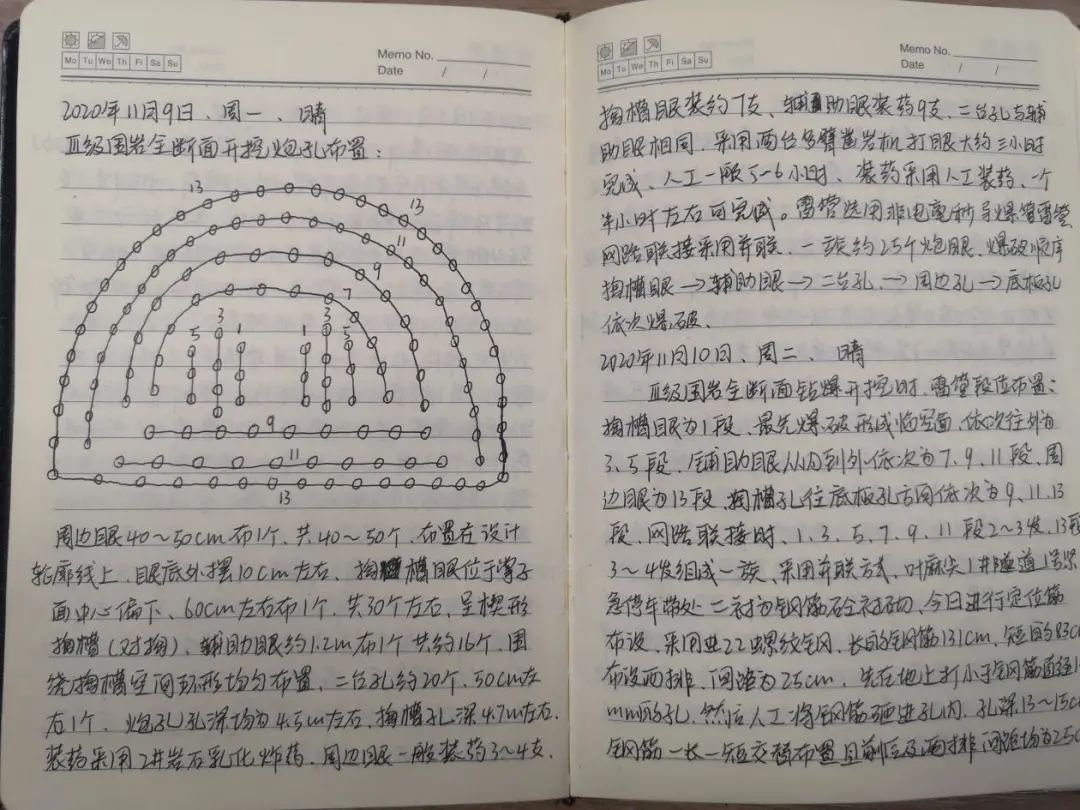 Mo Tu We Th Fr Sa Su
Memo No.
Date / /
2020年11月9日、周一、晴
Ⅲ级围岩全断面开挖炮孔布置:
13
13
11
9
7
3
3
5
1
1
5
9
11
13
周边眼40~50cm布1个、共40~50个、布置在设计
轮廓线上、眼底外摆10cm左右、掏槽眼位于掌子
面中心偏下、60cm左右布1个、共30个左右、呈楔形
掏槽(对掏)、辅助眼约1.2m布1个共约16个、围
绕掏槽空间环形均匀布置、二台孔约20个、50cm左
右1个、炮孔孔深均为4.5m左右、掏槽孔深4.7m左右、
装药采用2#岩石乳化炸药、周边眼一般装药3~4支、
Mo Tu We Th Fr Sa Su
Memo No.
Date / /
掏槽眼装药7支、辅助眼装药9支、二台孔与辅
助眼相同、采用两台多臂凿岩机打眼大约三小时
完成、人工一般5-6小时、装药采用人工装药、一个
半小时左右可完成。雷管选用非电毫秒导爆管雷管
网路联接采用并联、一簇约25个炮眼、爆破顺序
掏槽眼→辅助眼→二台孔→周边孔→底板孔
依次爆破、
2020年11月10日、周二、晴
Ⅲ级围岩全断面钻爆开挖时、雷管段位布置:
掏槽眼为1段、最先爆破形成临空面、依次往外为
3、5段、辅助眼从内到外依次为7、9、11段、周
边眼为13段、掏槽孔往底板孔方向依次为9、11、13
段、网路联接时、1、3、5、7、9、11段2~3发、13段
3~4发组成一簇、采用并联方式、叶麻尖1#隧道1号紧
急停车带处二衬为钢筋砼衬砌、今日进行定位筋
布设、采用Φ22螺纹钢、长的钢筋131cm、短的83c
布设两排、间距为25cm、先在地上打小于钢筋直径1
mm的孔、然后人工将钢筋砸进孔内、孔深13~15c
钢筋一长一短交替布置且前后及两排间距均为25c